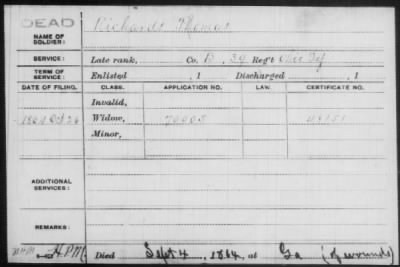 DEAD
NAME OF SOLDIER: Richards Thomas
SERVICE: Late rank, Co. D, 39 Reg't Ohio Inf
TERM OF SERVICE: Enlisted , 1 Discharged , 1
DATE OF FILING. CLASS. APPLICATION NO. LAW. CERTIFICATE NO.
Invalid,
1864 Oct 26 Widow,
Minor,
ADDITIONAL SERVICES:
REMARKS:
Died Sept 4, 1864, at Ga (of wounds)